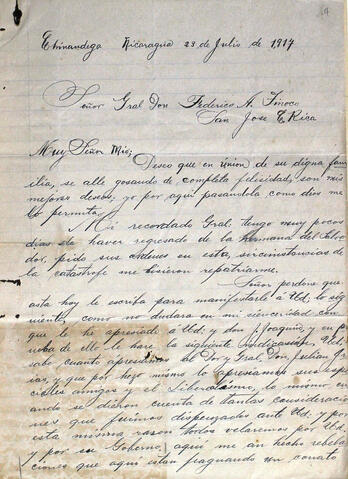 14
Chinandega Nicaragua 23 de Julio de 1917
Señor Gral Don Federico A. Tinoco
San Jose C. Rica
Muy Señor Mio;
Deseo que en union de su digna fam
ilia, se alle gosando de completa felisidad, son mis
mejores deseos, yo por aqui pasandola como dios me
lo permita.
Mi recordado Gral. tengo muy pocos
dias de haver regresado de la hermana del Salva
dor, pido sus ordenes en esta, sircinstancias de
la catastrofe me hisieron repatriarme.
Señor perdone que
asta hoy le escriba para manifestarle á Ud, lo sig
uiente, como no dudara en mi sinceridad con
que le he apresiado á Ud. y don Joaquin, y en p
rueba de elle le hare la siguiente indicasion, Ud.
sabe cuanto apresiamos al Dor y Gral, Don, Julian Ir
ias, y que por hogo mismo lo apresiamos sus
leales amigos y el Liberalismo, lo mismo cu
ando se dieron cuenta de tantas consideracio
nes que fuimos dispensados ante Ud. y por
esta misma rason todos velaremos por Ud.
y por su Gobierno, aqui me an hecho rebela
ciones que aqui estan fraguando un conato